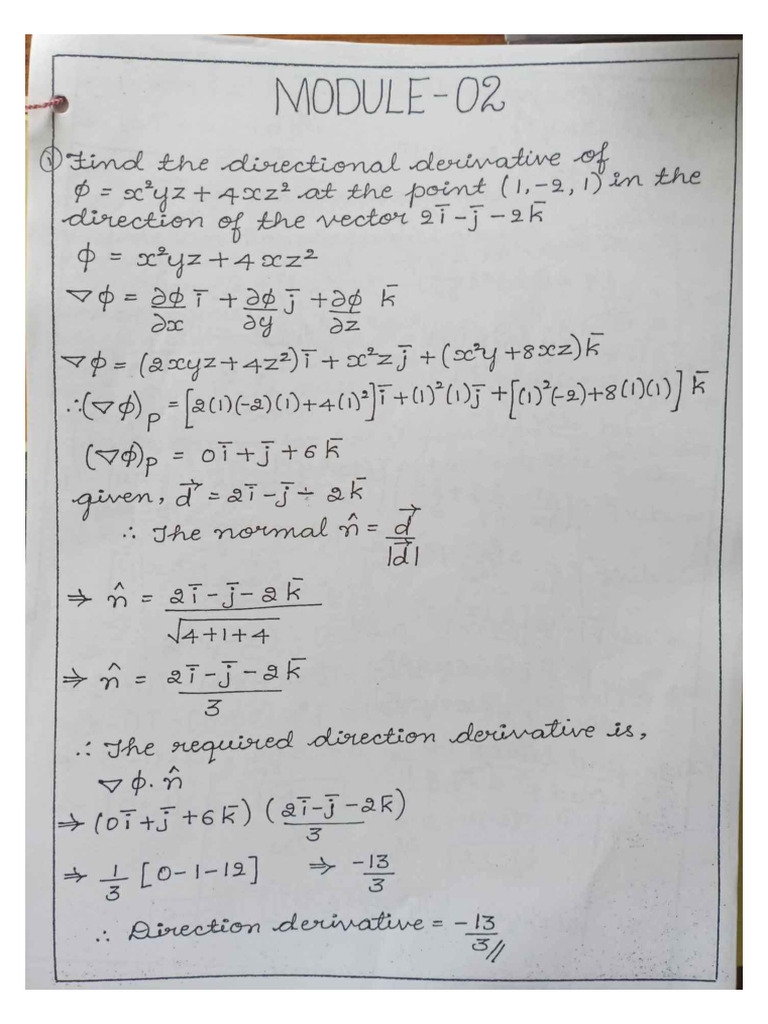 MODULE-02
① Find the directional derivative of
ϕ = x²yz + 4xz² at the point (1, -2, 1) in the
direction of the vector 2i̅ - j̅ - 2k̅
ϕ = x²yz + 4xz²
∇ϕ = ∂ϕ/∂x i̅ + ∂ϕ/∂y j̅ + ∂ϕ/∂z k̅
∇ϕ = (2xyz + 4z²)i̅ + x²z j̅ + (x²y + 8xz)k̅
∴(∇ϕ)ₚ = [2(1)(-2)(1) + 4(1)²]i̅ + (1)²(1)j̅ + [(1)²(-2) + 8(1)(1)]k̅
(∇ϕ)ₚ = 0i̅ + j̅ + 6k̅
given, d⃗ = 2i̅ - j̅ ÷ 2k̅
∴ The normal n̂ = d⃗/|d⃗|
⇒ n̂ = (2i̅ - j̅ - 2k̅)/√(4+1+4)
⇒ n̂ = (2i̅ - j̅ - 2k̅)/3
∴ The required direction derivative is,
∇ϕ · n̂
⇒ (0i̅ + j̅ + 6k̅) (2i̅ - j̅ - 2k̅)/3
⇒ 1/3 [0 - 1 - 12] ⇒ -13/3
∴ Direction derivative = -13/3 //